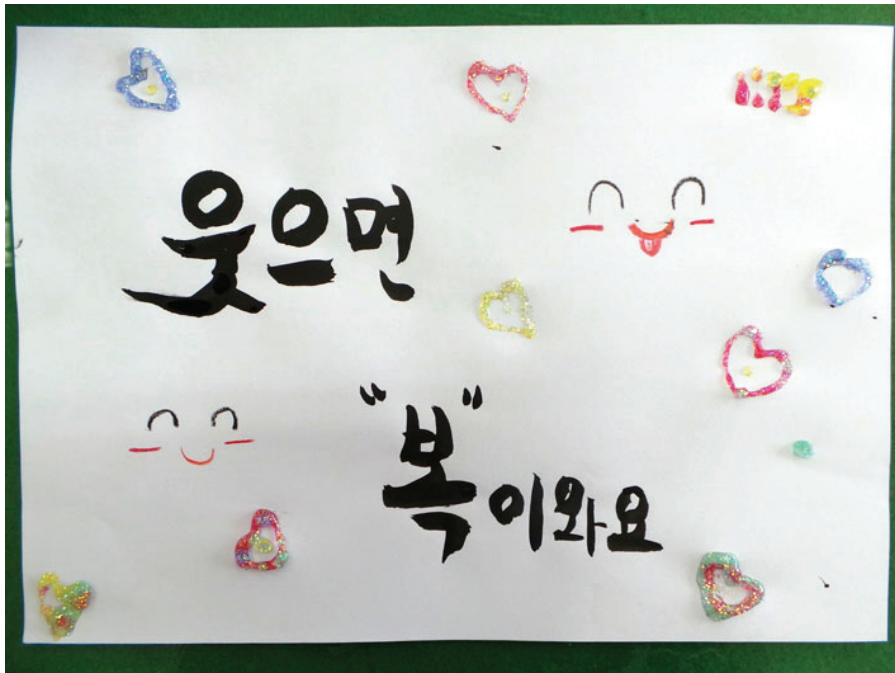 웃으면
"복"이와요